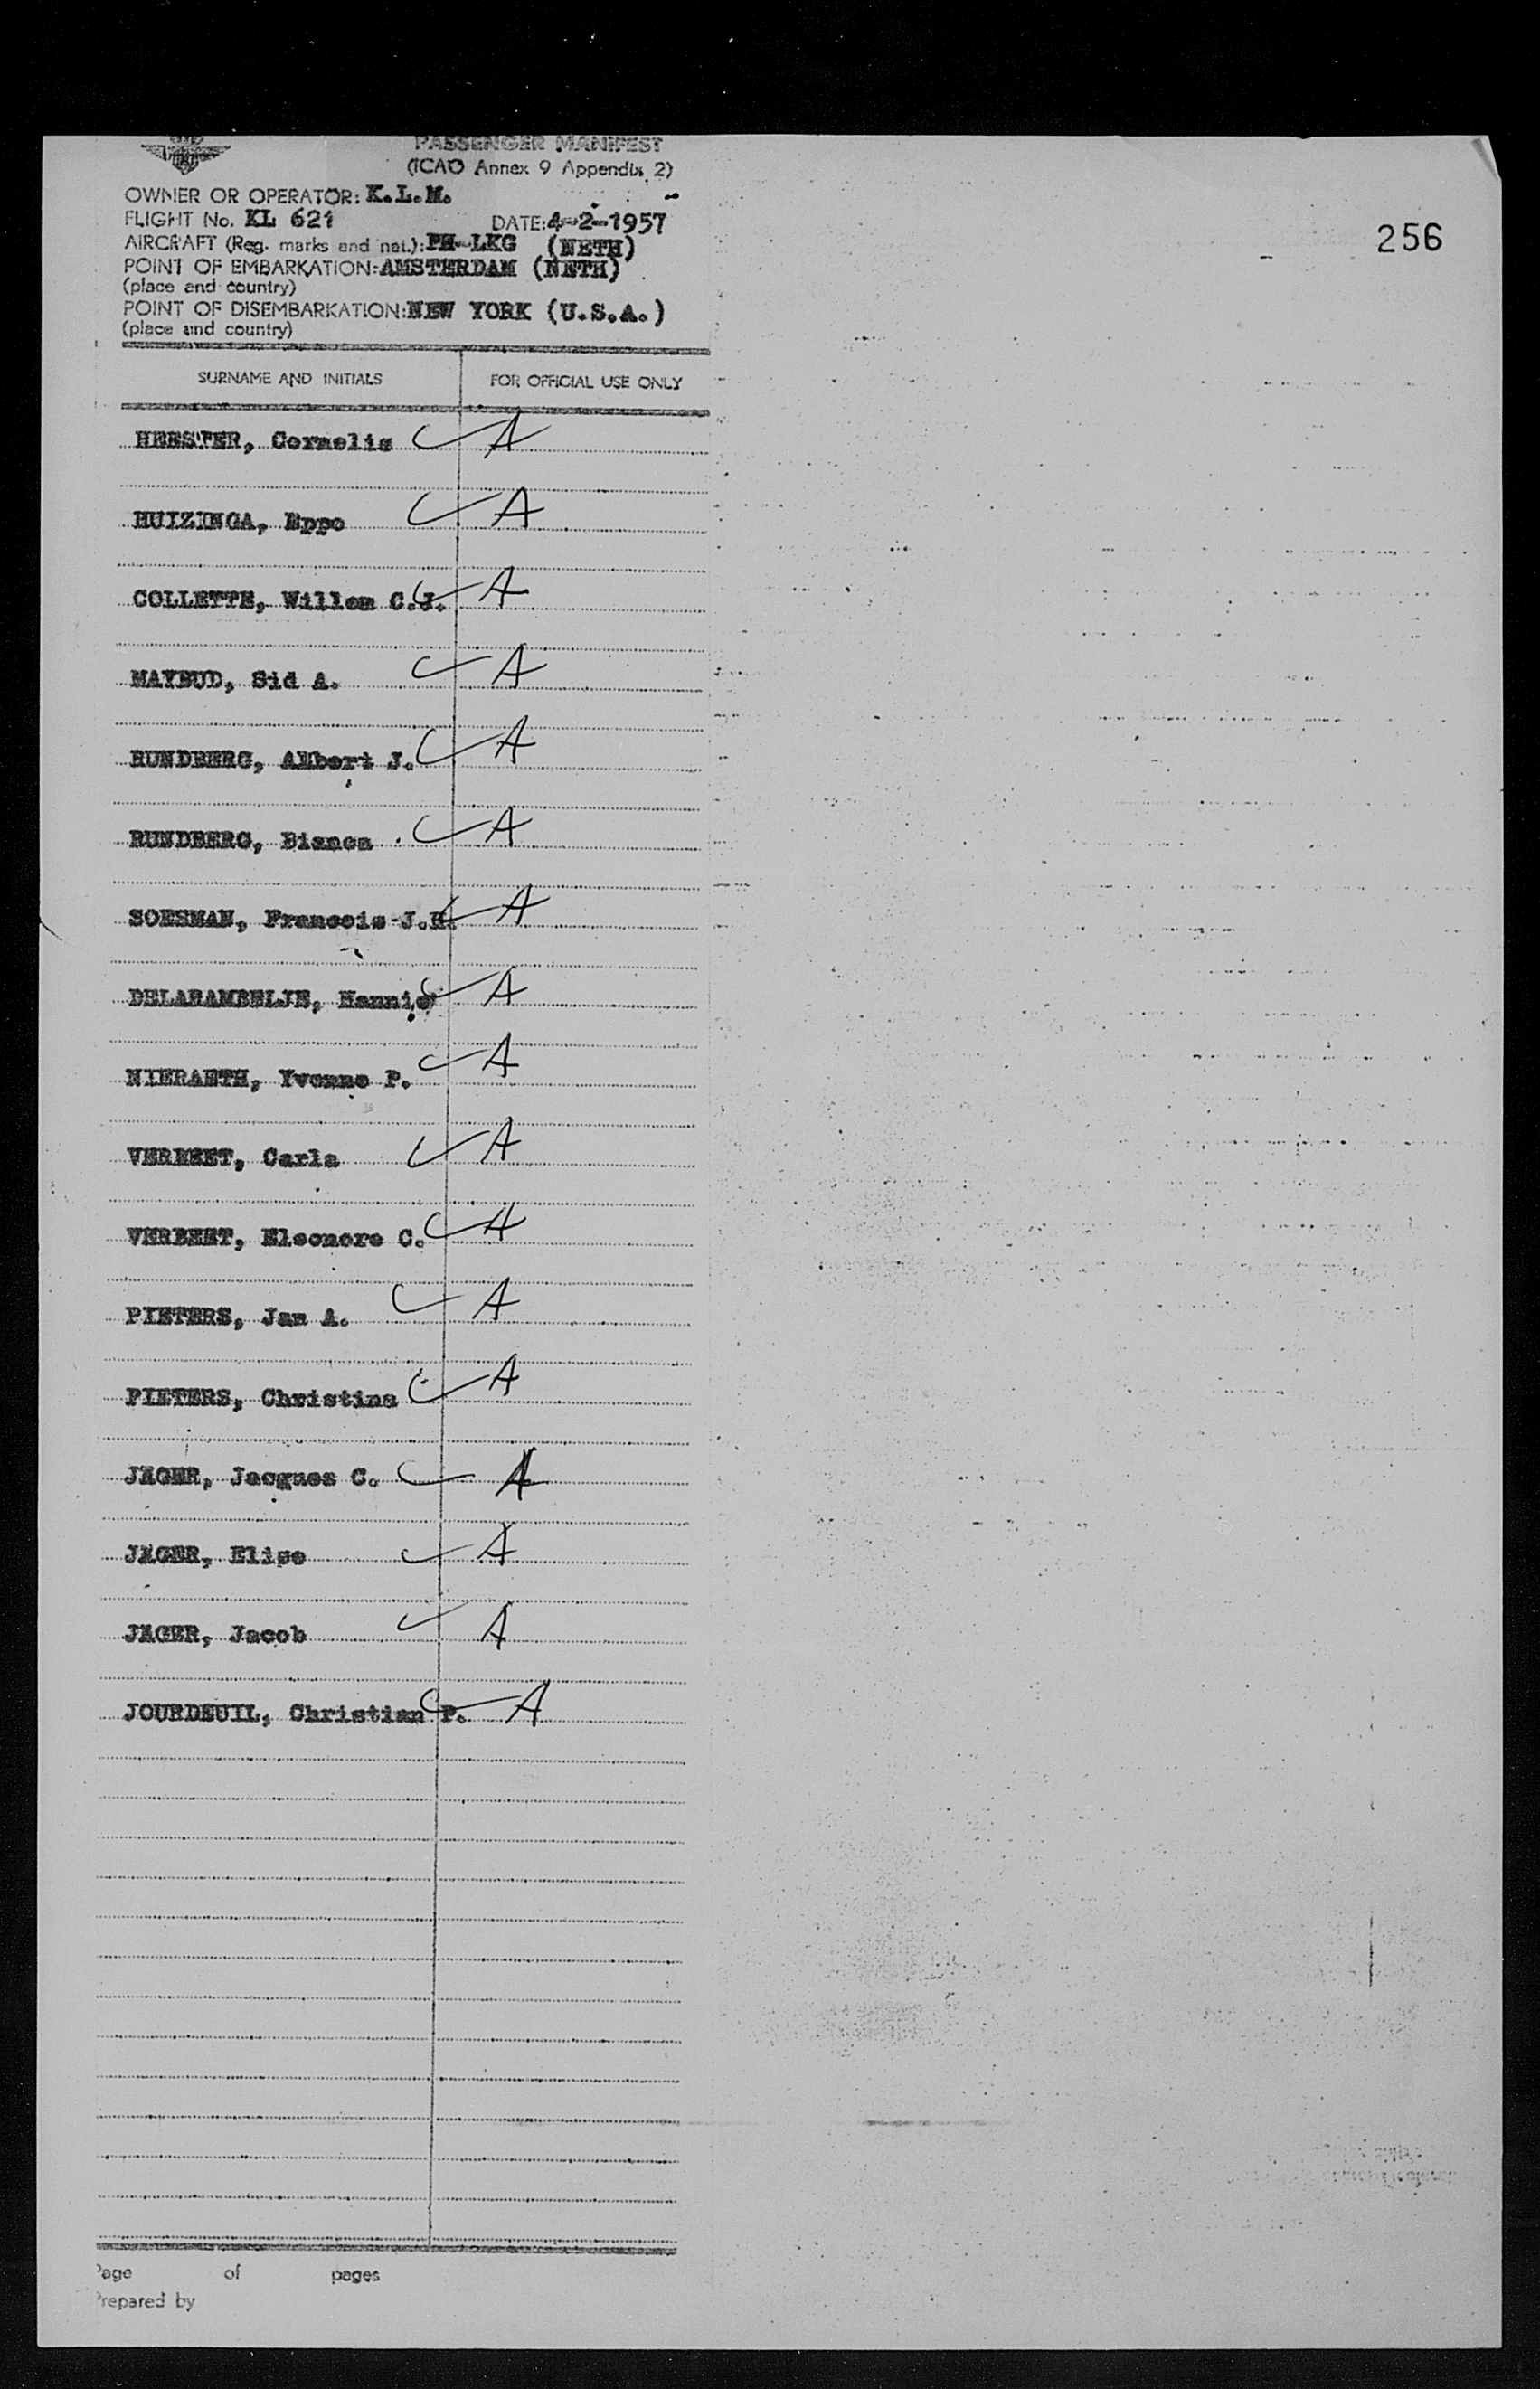 PASSENGER MANIFEST
(ICAO Annex 9 Appendix 2)
OWNER OR OPERATOR: K.L.M.
FLIGHT No. KL 621 DATE: 4-2-1957
256
AIRCRAFT (Reg. marks and nat.): PH-LKG (NETH)
POINT OF EMBARKATION: AMSTERDAM (NETH)
(place and country)
POINT OF DISEMBARKATION: NEW YORK (U.S.A.)
(place and country)
SURNAME AND INITIALS FOR OFFICIAL USE ONLY
HEESTER, Cornelis ✓ A
HUIZINGA, Eppo ✓ A
COLLETTE, Willem C.J. ✓ A
MAYBUD, Sid A. ✓ A
RUNDBERG, Albert J. ✓ A
RUNDBERG, Bianca ✓ A
SOESMAN, Francois J. ✓ A
Hannie ✓ A
NIERAETH, Yvonne P. ✓ A
VERBEET, Carla ✓ A
VERBEET, Eleonore C. ✓ A
PIETERS, Jan A. ✓ A
PIETERS, Christina ✓ A
JAGER, Jacques C. ✓ A
JAGER, Elise ✓ A
JAGER, Jacob ✓ A
JOURDEUIL, Christian P. ✓ A
Page of pages
Prepared by